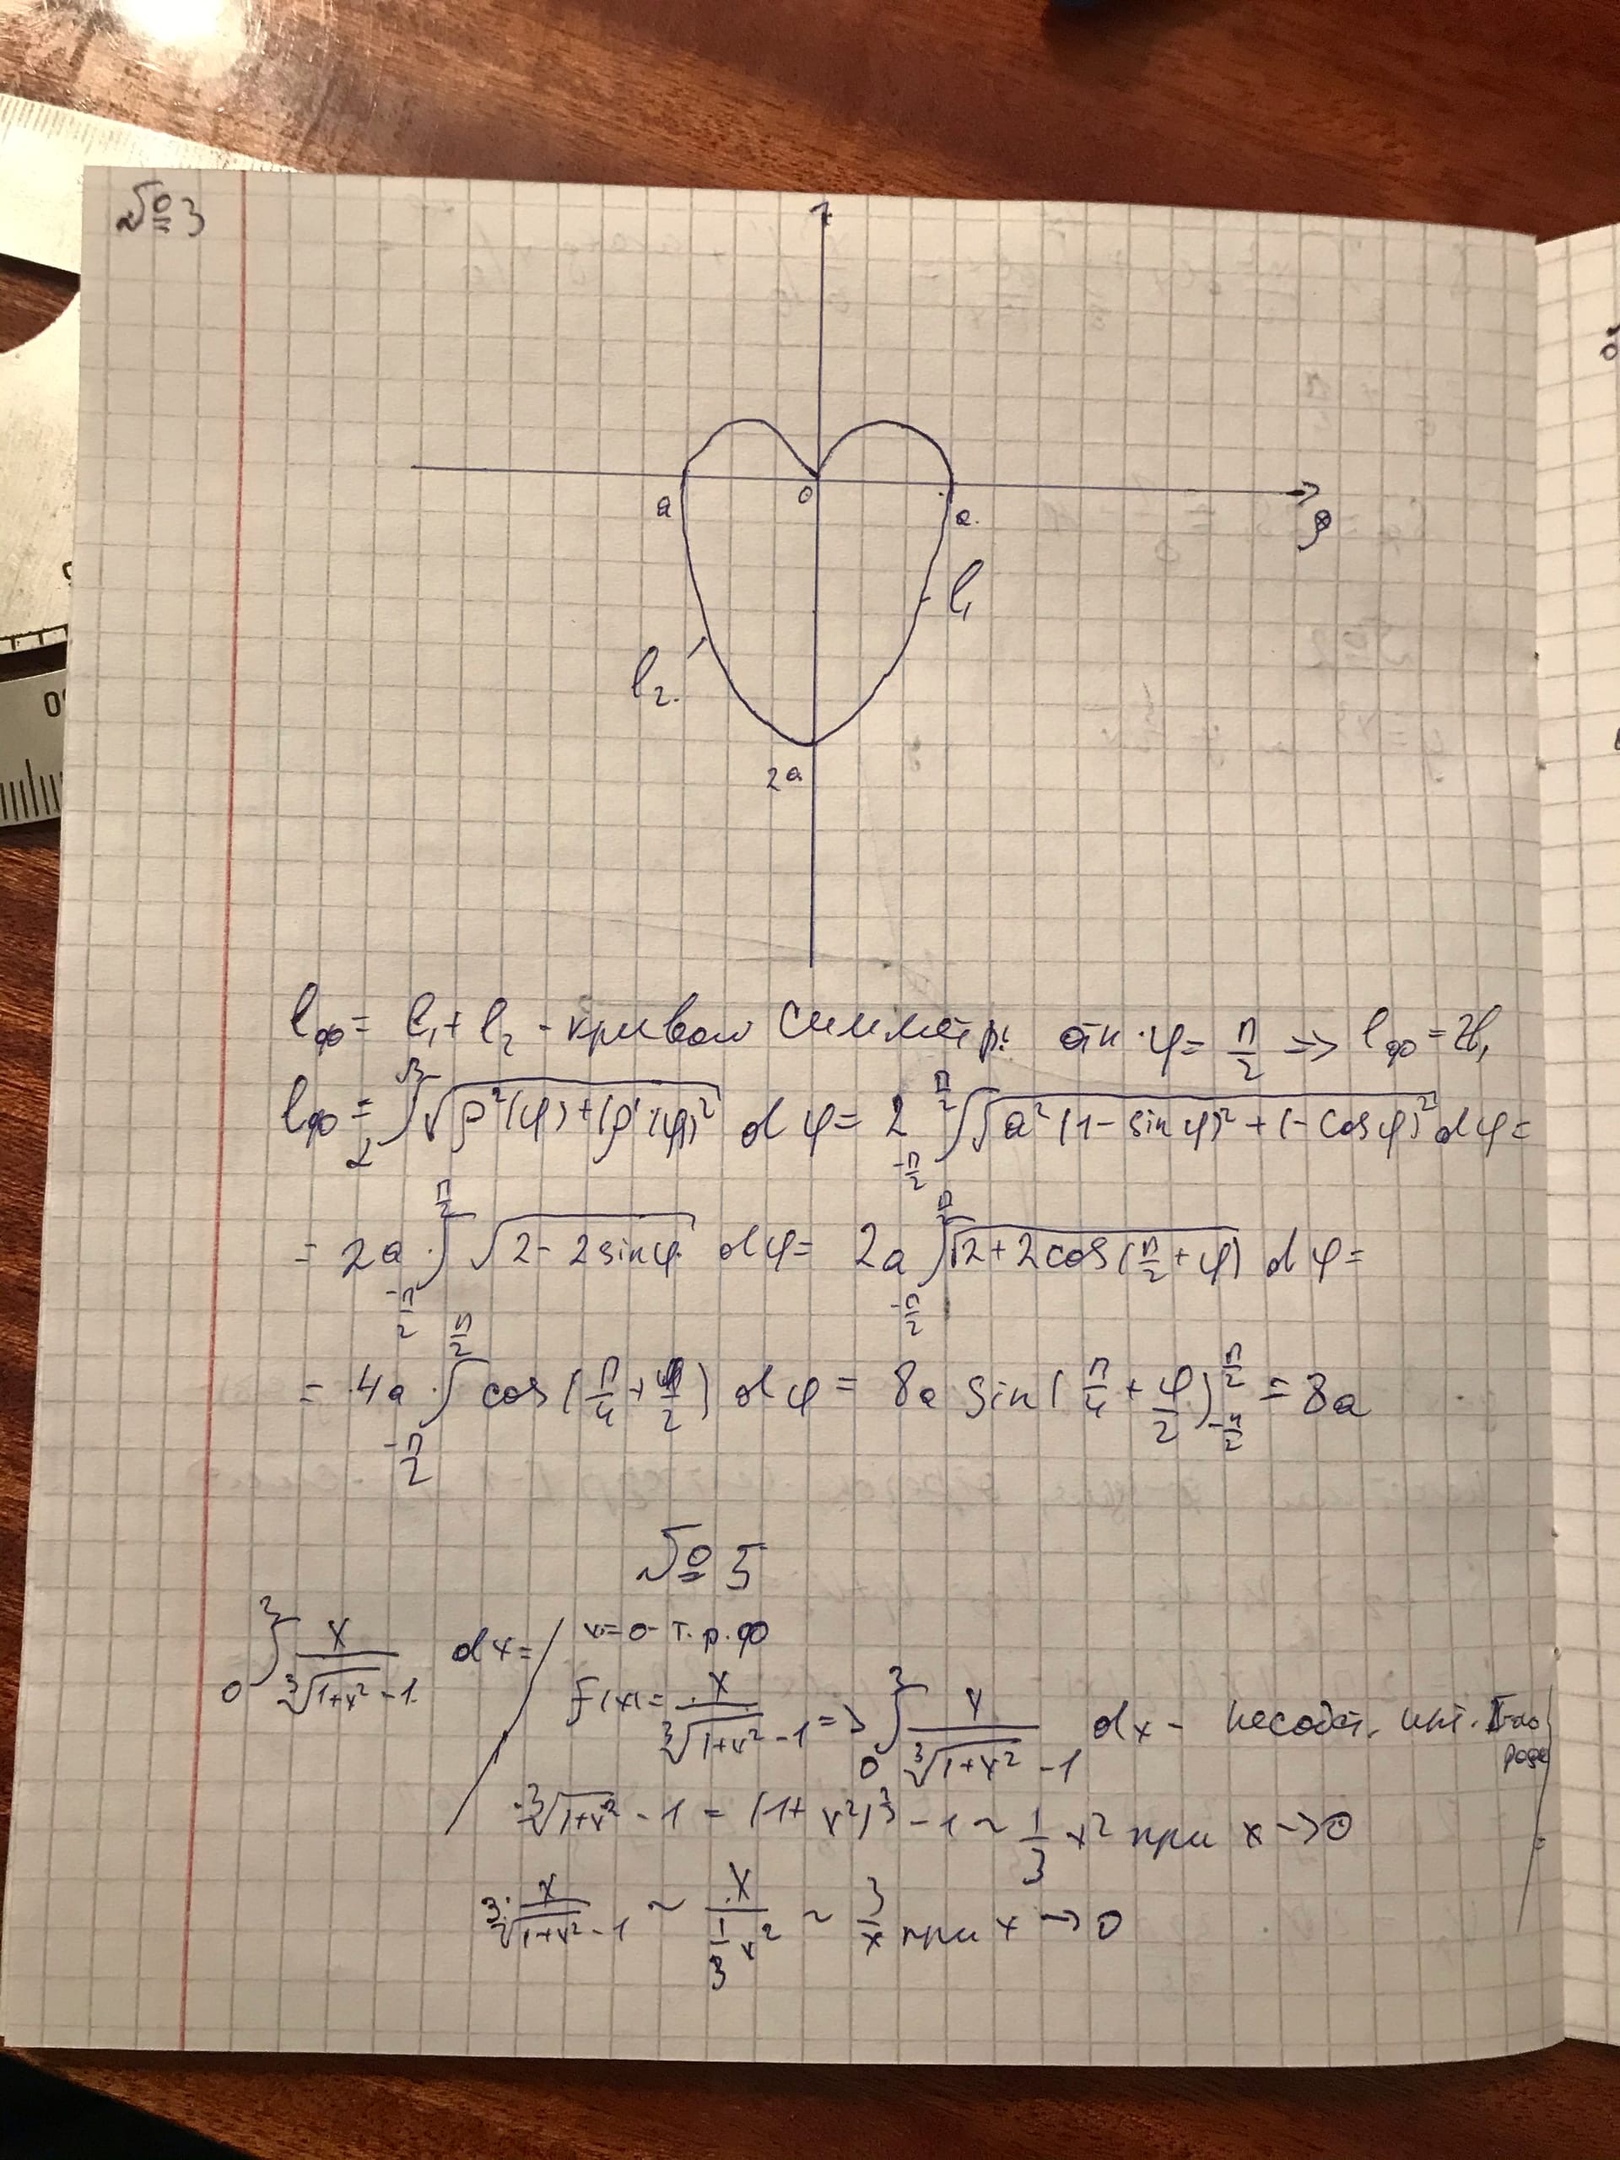 №3
a
0
a
ρ
l₁
l₂
2a
lφ = l₁ + l₂ - кривая симметр. отн. φ = π/2 => lφ = 2l₁
lφ = ∫ √(ρ²(φ) + (ρ'(φ))²) dφ = 2 ∫_{-π/2}^{π/2} √(a²(1 - sinφ)² + (-cosφ)²) dφ =
= 2a · ∫_{-π/2}^{π/2} √(2 - 2sinφ) dφ = 2a ∫_{-π/2}^{π/2} √(2 + 2cos(π/2 + φ)) dφ =
= 4a · ∫_{-π/2}^{π/2} cos(π/4 + φ/2) dφ = 8a sin(π/4 + φ/2)|_{-π/2}^{π/2} = 8a
№5
∫_0^3 x/(∛(1+x²) - 1) dx = / x=0 - т.р. ф
f(x) = x/(∛(1+x²) - 1) => ∫_0^3 x/(∛(1+x²) - 1) dx - несобст. инт. II-го рода /
∛(1+x²) - 1 = (1 + x²)^{1/3} - 1 ~ 1/3 x² при x → 0 =
x/(∛(1+x²) - 1) ~ x/(1/3 x²) ~ 3/x при x → 0